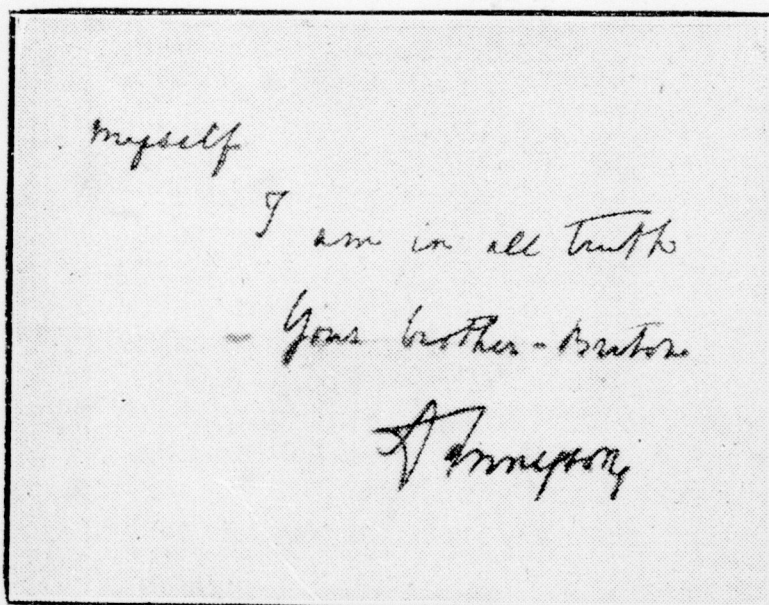 myself
I am in all truth
Your brother-Briton
A Tennyson